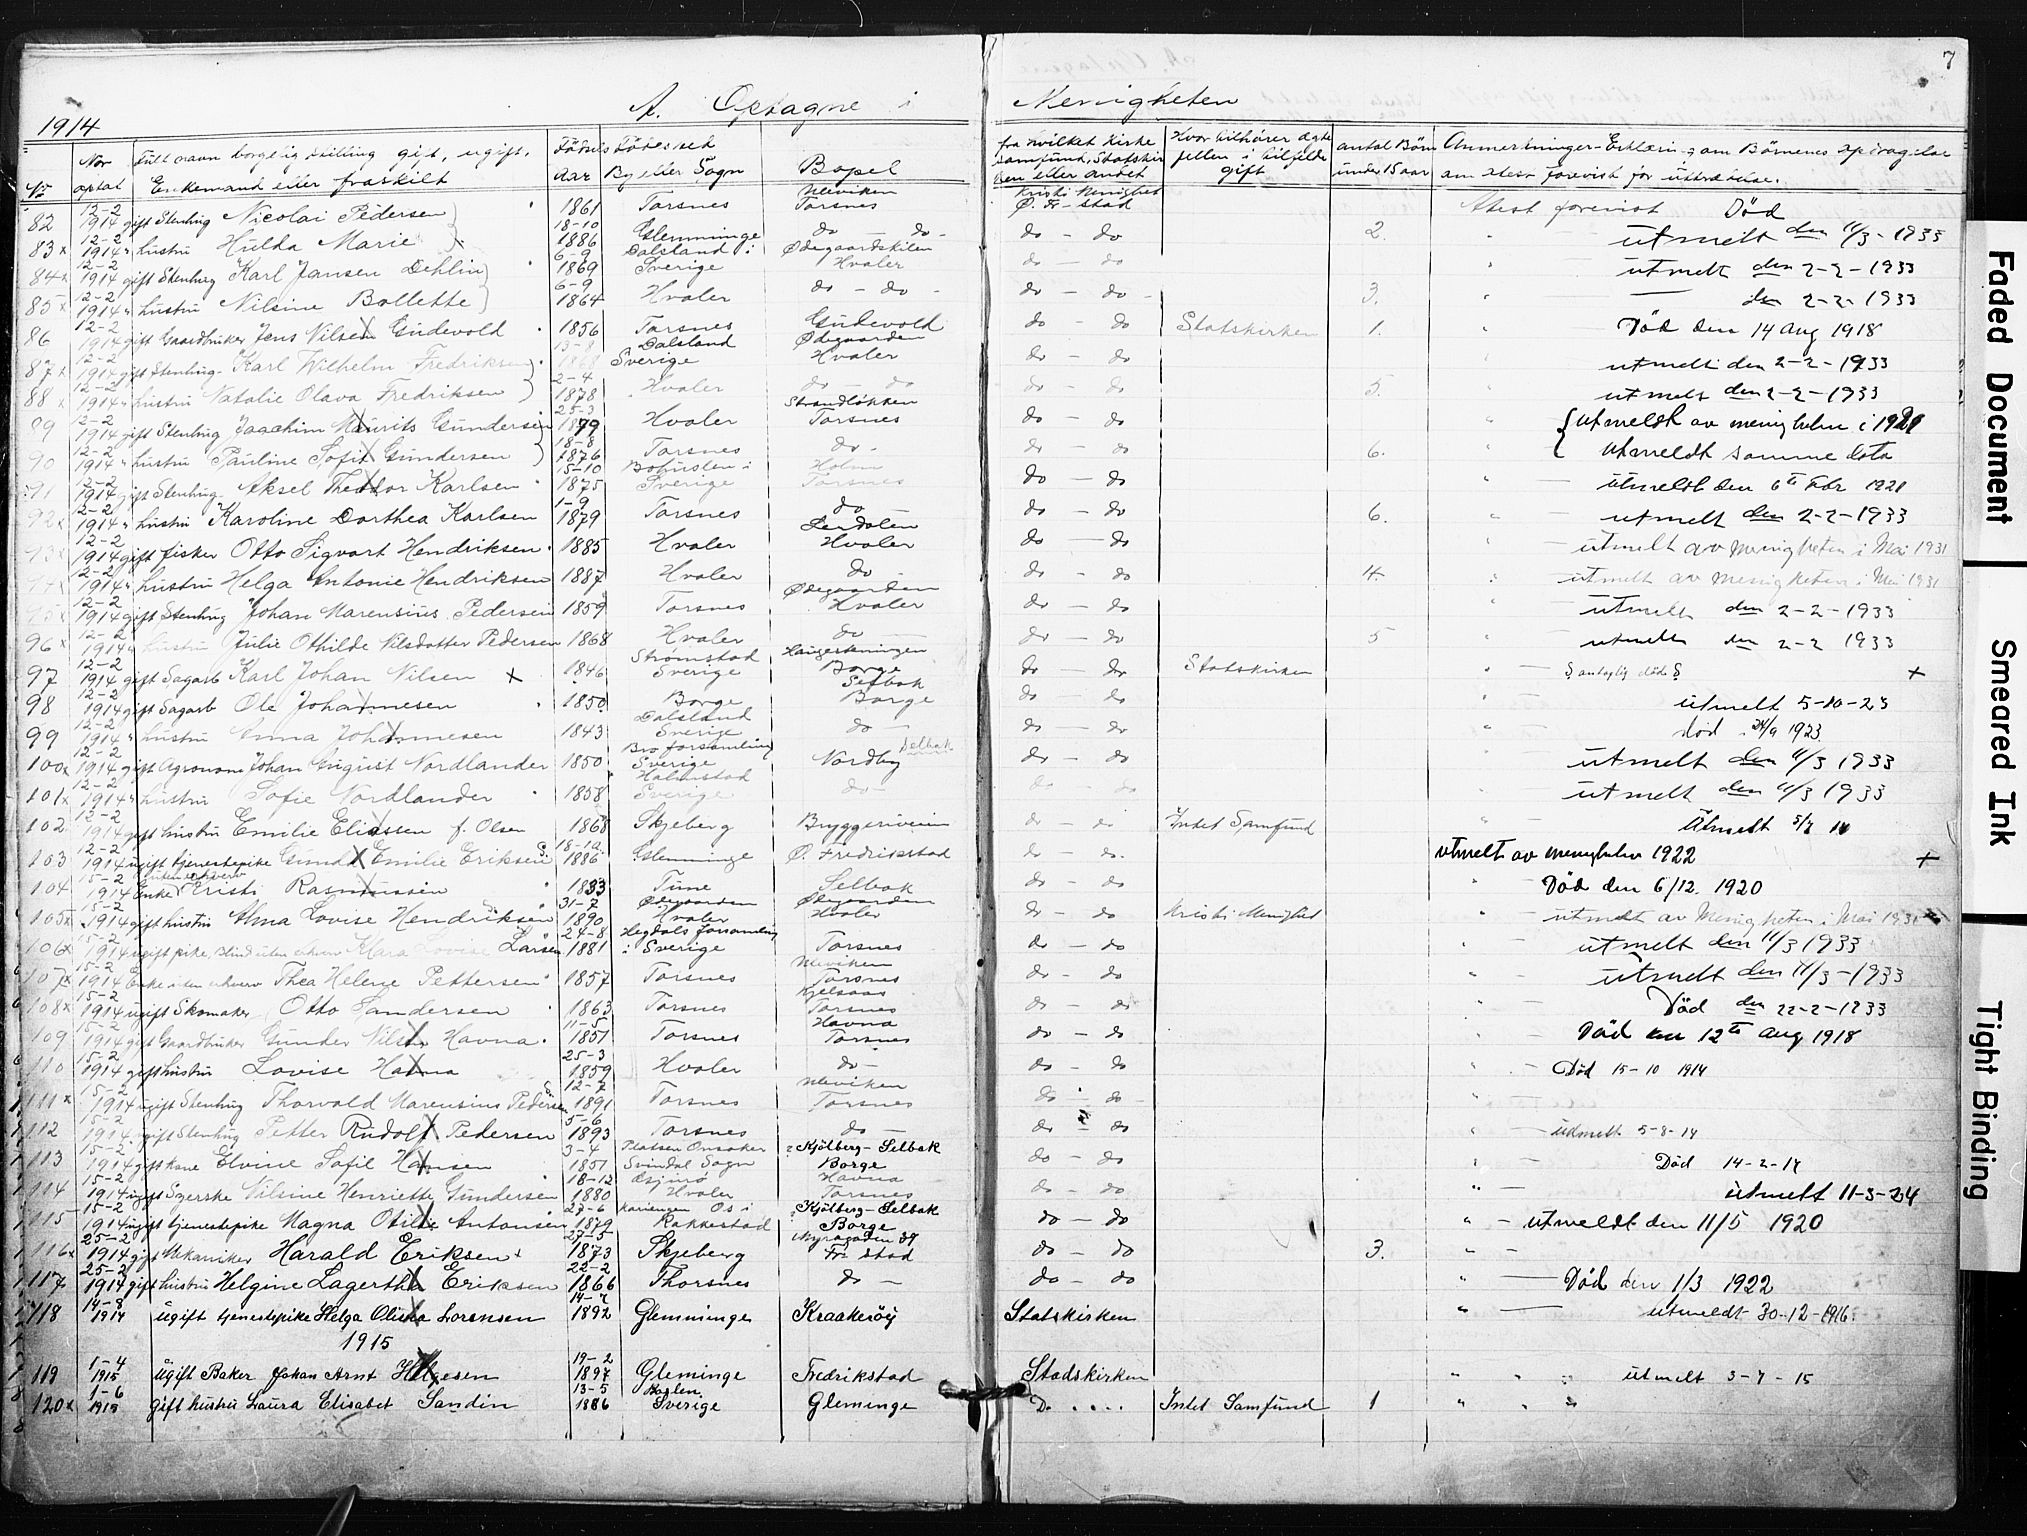 7
A. Optagne i Menigheten
1914
No
Naar optat
Fult navn borgelig stilling gift, ugift, Enkemand eller fraskilt
Fødsels Aar
Fødested By eller Sogn
Bopel
fra hvilket Kirke samfund, Statskirken eller andet
Hvor tilhører ægtefellen i tilfelde gift
antal Børn under 15 aar
Anmerkninger
82 12-2 1914 gift Stenhug Nicolai Pedersen 1861 Torsnes Uleviken Torsnes Kristi Menighet Ø. Fr-stad Atest forevist Död
83 x 12-2 1914 " hustru Hulda Marie 18-10 1886 Glemminge do - do - do - do 2. " utmelt den 11/3 - 1933
84 x 12-2 1914 gift Stenhug Karl Jansen Dehlin 6-9 1869 Dalsland i Sverige Ødegaardskilen Hvaler do - do " utmelt den 2-2-1933
85 x 12-2 1914 " hustru Nilsine Bollette 6-9 1864 Hvaler do - do - do - do - 3. " — den 2-2-1933
86 12-2 1914 gift Gaardbruker Jens Nilsen Gudevold 1856 Torsnes Gudevold do - do Statskirken 1. " Död den 14 Aug 1918
87 x 12-2 1914 gift Stenhug. Karl Wilhelm Fredriksen 13-8 1868 Dalsland Sverige Ødegaarden Hvaler do - do utmelt den 2-2-1933
88 x 12-2 1914 " hustru Natalie Olava Fredriksen 2-4 1878 Hvaler do - do do - do 5. " utmelt den 2-2-1933
89 12-2 1914 gift Stenhug Joachim Maurits Gundersen 25-3 1879 Hvaler Strandløkken Torsnes do - do " utmeldt av menigheten i 1921
90 12-2 1914 " hustru Pauline Sofie Gundersen 18-8 1876 Torsnes do - do - do 6. " utmeldt samme dato
91 12-2 1914 gift Stenhug. Aksel Theodor Karlsen 15-10 1875 Bohuslen i Sverige Holm Torsnes do - do " utmeldt den 6te Febr 1921
92 x 12-2 1914 " hustru Karoline Dorthea Karlsen 1-9 1879 Torsnes do do - do 6. " utmelt den 2-2-1933
93 x 12-2 1914 gift fisker Otto Sigvart Hendriksen 1885 Hvaler Lerdalen Hvaler do - do " utmelt av Menigheten i Mai 1931
94 x 12-2 1914 " hustru Helga Antonie Hendriksen 1887 Hvaler do - do - do 4. " utmelt av Menigheten i Mai 1931
95 x 12-2 1914 gift Stenhug Johan Marensius Pedersen 1859 Torsnes Ødegaarden Hvaler do - do " utmelt den 2-2-1933
96 x 12-2 1914 " hustru Julie Othilde Nilsdatter Pedersen 1868 Hvaler do — do - do 5 " utmelt den 2-2 1933
97 12-2 1914 gift Sagarb Karl Johan Nilsen x 1846 Strømstad Sverige Haugesteningen Borge do - do Statskirken " — § antaglig död § +
98 12-2 1914 gift Sagarb Ole Johannesen 1850 Borge Selbak Borge do - do " utmelt 5-10-23
99 12-2 1914 " hustru Anna Johannesen 1843 Dalsland Sverige do - do - do " död 24/9 1923
100 x 12-2 1914 gift Agronom Johan August Nordlander 1850 Bro forsamling Sverige Nordby Selbak do - do utmelt den 11/3 1933
101 x 12-2 1914 " hustru Sofie Nordlander 1858 Halmstad Sverige do - do - do utmelt den 11/3 1933
102 12-2 1914 gift hustru Emilie Eliassen f. Olsen 1868 Skjeberg Bryggeriveien do - do Intet Samfund " - Utmelt
103 12-2 1914 ugift tjenestepike Gunda Emilie Eriksen 18-10 1886 Glemminge Ø. Fredrikstad do - do. utmelt av menigheten 1922 +
104 15-2 1914 Enke Rasmussen 1833 Tune Selbak do - do " - Död den 6/12. 1920
105 x 15-2 1914 gift hustru Alma Lovise Hendriksen 31-7 1890 Ødegaarden Hvaler Ødegaarden Hvaler do - do Kristi Menighet " - utmelt av Menigheten i Mai 1931
106 x 15-2 1914 ugift pike, Blind uten erhverv Klara Lovise Larsen 24-8 1881 Hegdals forsamling i Sverige Torsnes do - do " - utmelt den 11/3 1933
107 x 15-2 1914 Enke uten erhverv Thea Helene Pettersen 1857 Torsnes Uleviken Torsnes do - do " - utmelt den 11/3-1933
108 x 15-2 1914 ugift Skomaker Otto Sandersen 1863 Torsnes Kjelsaas Torsnes do - do " - Död den 22-2-1933
109 15-2 1914 gift Gaardbruker Gunder Nilsen Havna 11-5 1851 Torsnes Havna Torsnes do - do " - Död den 12te Aug 1918
110 15-2 1914 gift hustru Lovise Havna 25-3 1859 Hvaler do - do - do " - Död 15-10 1914
111 x 15-2 1914 ugift Stenhug Thorvald Marensius Pedersen 12-7 1891 Torsnes Uleviken Torsnes do - do - "
112 15-2 1914 ugift Stenhug Petter Rudolf Pedersen 5-6 1893 Torsnes do - do - do " - utmelt 5-8-14
113 15-2 1914 gift kone Elvine Sofie Hansen 3-4 1851 Svindal Sogn Kjölberg-Selbak Borge do - do " - Död 14-2-17
114 15-2 1914 ugift Syerske Nilsine Henriette Gundersen 18-12 1880 Hvaler Havna Torsnes do - do " - utmelt 11-3-24
115 15-2 1914 ugift tjenestepike Magna Otilie Antonsen 27-6 1879 Os i Rakkestad Kjölberg-Selbak Borge do - do " - utmeldt den 11/5 1920
116 x 25-2 1914 gift Mekaniker Harald Eriksen 27-5 1873 Skjeberg Myragaden 39 Fr. stad do - do 3. " -
117 25-2 1914 gift hustru Helgine Lagertha Eriksen 22-2 1866 Thorsnes do - do - do " — Död den 1/3 1922
118 14-8 1914 ugift tjenestepike Helga Olivia Lorensen 14-7 1892 Glemminge Kraakeröy Statskirken " — utmeldt 30-12-1916.
1915
119 1-4 1915 ugift Baker Johan Arnt Helgesen 19-2 1897 Gleminge Fredrikstad Stadskirken " " " utmelt 3-7-15
120 x 1-6 1915 gift hustru Laura Elisabet Sandin 13-5 1886 Sverige Gleminge Do .... Intet Samfund 1 " " "
Faded Document
Smeared Ink
Tight Binding